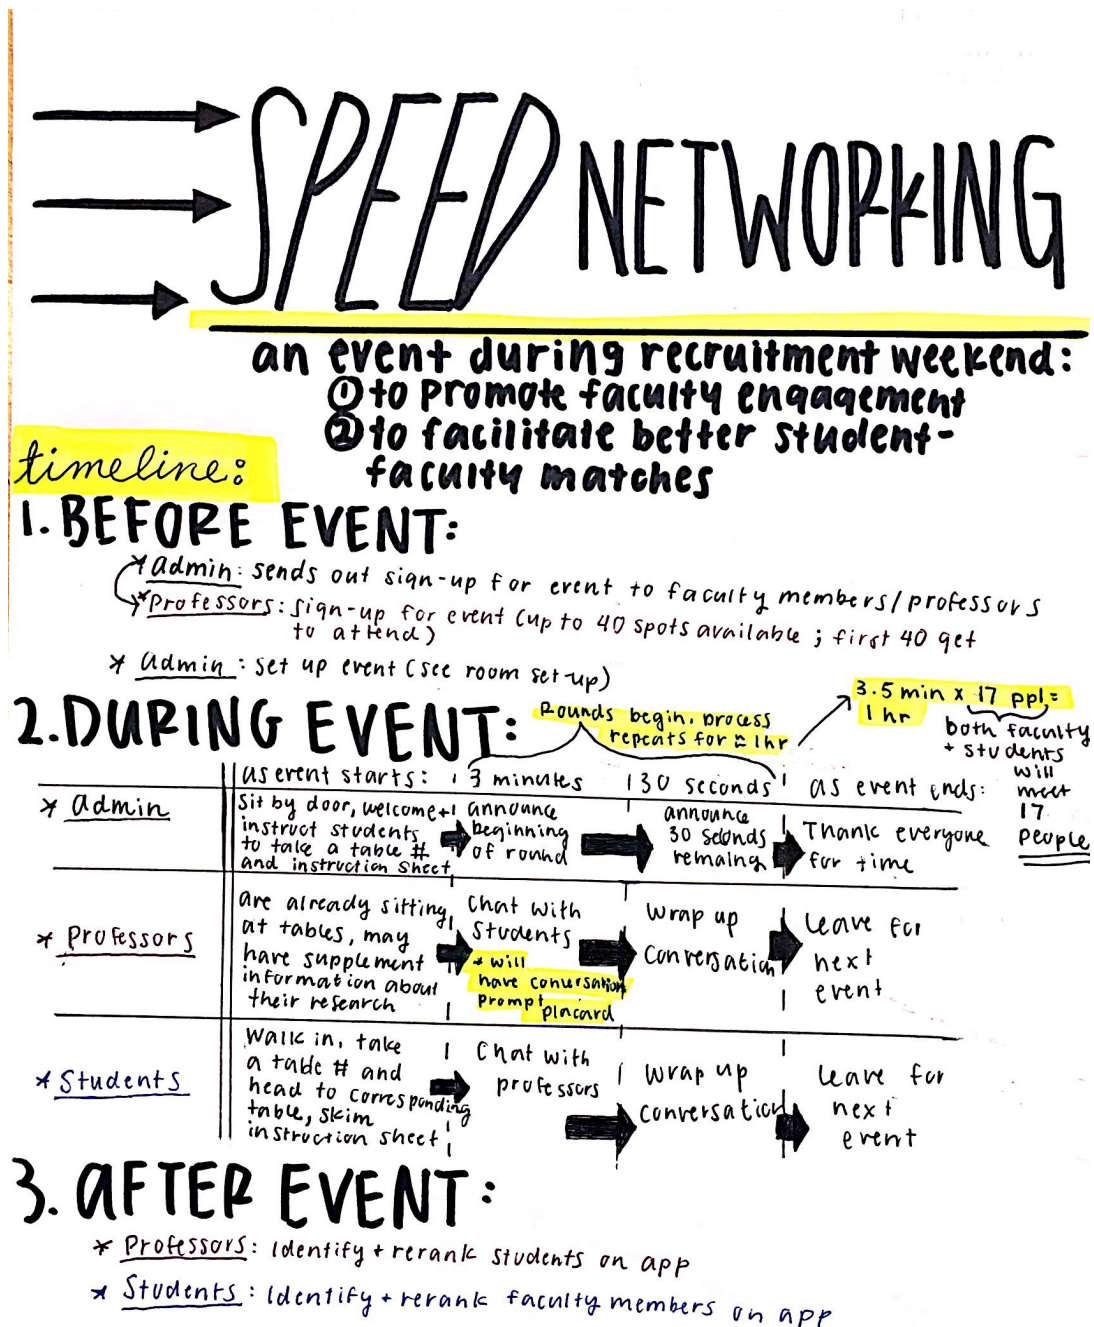 SPEED NETWORKING
an event during recruitment weekend:
① to promote faculty engagement
② to facilitate better student-
faculty matches
timeline:
1. BEFORE EVENT:
* Admin: sends out sign-up for event to faculty members/professors
* Professors: sign-up for event (up to 40 spots available; first 40 get
to attend)
* Admin: set up event (see room set-up)
2. DURING EVENT:
Rounds begin, process
repeats for ≈ 1hr
3.5 min x 17 ppl =
1 hr
both faculty
+ students
will
meet
17
people
as event starts:
3 minutes
30 seconds
as event ends:
* Admin
Sit by door, welcome +
instruct students
to take a table #
and instruction sheet
announce
beginning
of round
announce
30 seconds
remaing
Thank everyone
for time
* Professors
are already sitting
at tables, may
have supplement
information about
their research
Chat with
students
* will
have conversation
prompt placard
Wrap up
conversation
Leave for
next
event
* Students
Walk in, take
a table # and
head to corresponding
table, skim
instruction sheet
Chat with
professors
Wrap up
conversation
Leave for
next
event
3. AFTER EVENT:
* Professors: Identify + rerank students on app
* Students: Identify + rerank faculty members on app